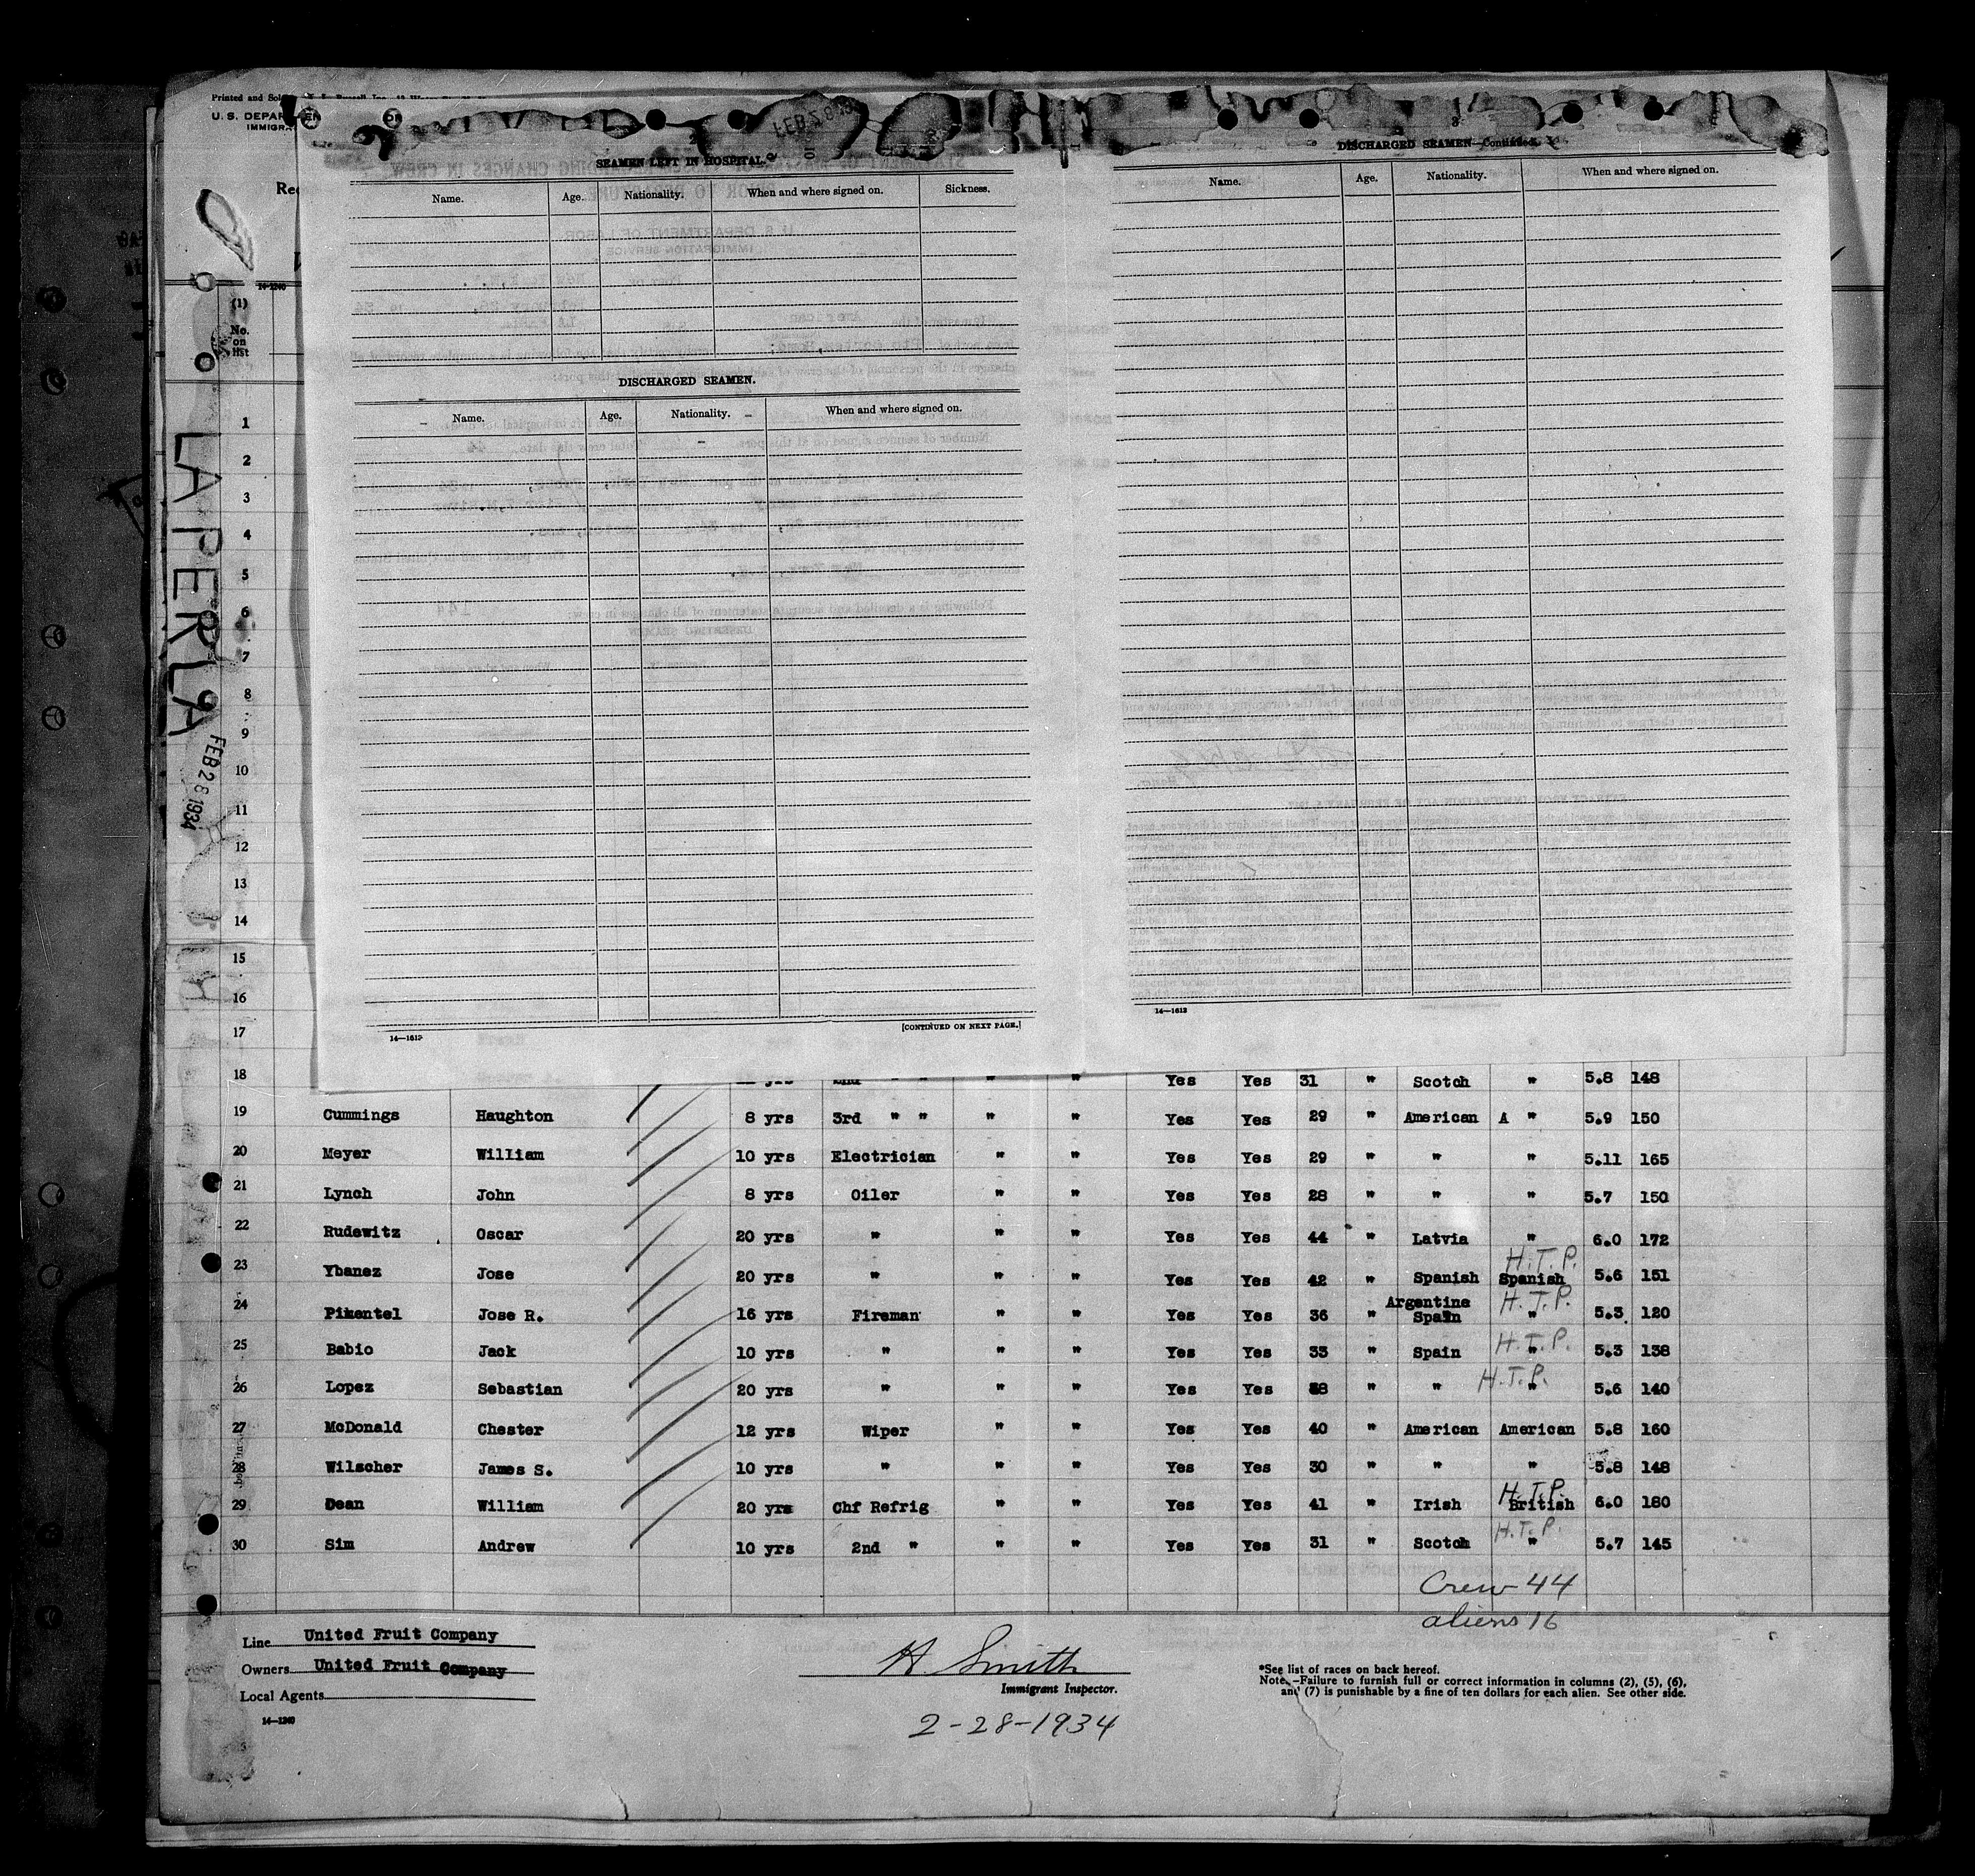 Printed and Sol
U. S. DEPAR
IMMIGRA
LA PERLA
FEB 28 1934
14-1240
(1)
No. on list
SEAMEN LEFT IN HOSPITAL.
Name. Age. Nationality. When and where signed on. Sickness.
DISCHARGED SEAMEN.
Name. Age. Nationality. When and where signed on.
14—1613
[CONTINUED ON NEXT PAGE.]
DISCHARGED SEAMEN—Continued.
Name. Age. Nationality. When and where signed on.
14—1613
1
2
3
4
5
6
7
8
9
10
11
12
13
14
15
16
17
18 2nd " " " " Yes Yes 31 " Scotch " 5.8 148
19 Cummings Haughton 8 yrs 3rd " " " " Yes Yes 29 " American A " 5.9 150
20 Meyer William 10 yrs Electrician " " Yes Yes 29 " " " 5.11 165
21 Lynch John 8 yrs Oiler " " Yes Yes 28 " " " 5.7 150
22 Rudewitz Oscar 20 yrs " " " Yes Yes 44 " Latvia " 6.0 172
23 Ybanez Jose 20 yrs " " " Yes Yes 42 " Spanish Spanish H.T.P. 5.6 151
24 Pimentel Jose R. 16 yrs Fireman " " Yes Yes 36 " Argentine Spain " H.T.P. 5.3 120
25 Babio Jack 10 yrs " " " Yes Yes 33 " Spain " H.T.P. 5.3 138
26 Lopez Sebastian 20 yrs " " " Yes Yes 38 " " " H.T.P. 5.6 140
27 McDonald Chester 12 yrs Wiper " " Yes Yes 40 " American American 5.8 160
28 Wilscher James S. 10 yrs " " " Yes Yes 30 " " " 5.8 148
29 Dean William 20 yrs Chf Refrig " " Yes Yes 41 " Irish British H.T.P. 6.0 180
30 Sim Andrew 10 yrs 2nd " " " Yes Yes 31 " Scotch " H.T.P. 5.7 145
Crew 44
aliens 16
Line United Fruit Company
Owners United Fruit Company
Local Agents
14—1240
H Smith
Immigrant Inspector.
2-28-1934
*See list of races on back hereof.
Note.—Failure to furnish full or correct information in columns (2), (5), (6),
and (7) is punishable by a fine of ten dollars for each alien. See other side.